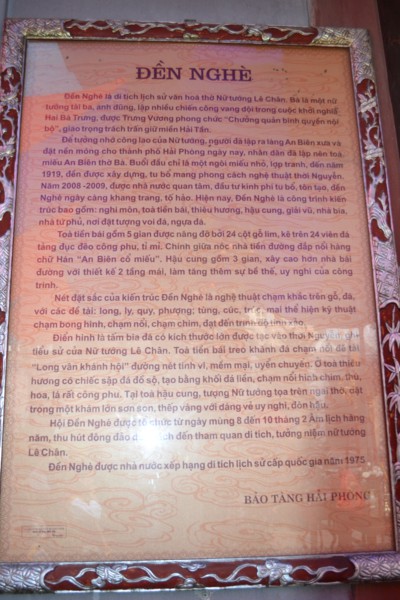 ĐỀN NGHÈ
Đền Nghè là di tích lịch sử văn hoá thờ Nữ tướng Lê Chân. Bà là một nữ
tướng tài ba, anh dũng, lập nhiều chiến công vang dội trong cuộc khởi nghĩa
Hai Bà Trưng, được Trưng Vương phong chức "Chưởng quản binh quyền nội
bộ", giao trọng trách trấn giữ miền Hải Tần.
Để tưởng nhớ công lao của Nữ tướng, người đã lập ra làng An Biên xưa và
đặt nền móng cho thành phố Hải Phòng ngày nay, nhân dân đã lập nên toà
miếu An Biên thờ Bà. Buổi đầu chỉ là một ngôi miếu nhỏ, lợp tranh, đến năm
1919, đền được xây dựng, tu bổ mang phong cách nghệ thuật thời Nguyễn.
Năm 2008 -2009, được nhà nước quan tâm, đầu tư kinh phí tu bổ, tôn tạo, đền
Nghè ngày càng khang trang, tố hảo. Hiện nay, Đền Nghè là công trình kiến
trúc bao gồm: nghi môn, toà tiền bái, thiêu hương, hậu cung, giải vũ, nhà bia,
nhà tứ phủ, nơi đặt tượng voi đá, ngựa đá.
Toà tiền bái gồm 5 gian được nâng đỡ bởi 24 cột gỗ lim, kê trên 24 viên đá
tảng đục đẽo công phu, tỉ mỉ. Chính giữa nóc nhà tiền đường đắp nổi hàng
chữ Hán "An Biên cổ miếu". Hậu cung gồm 3 gian, xây cao hơn nhà bái
đường với thiết kế 2 tầng mái, làm tăng thêm sự bề thế, uy nghi của công
trình.
Nét đặc sắc của kiến trúc Đền Nghè là nghệ thuật chạm khắc trên gỗ, đá,
với các đề tài: long, ly, quy, phượng; tùng, cúc, trúc, mai thể hiện kỹ thuật
chạm bong hình, chạm nổi, chạm chìm, đạt đến trình độ tinh xảo.
Điển hình là tấm bia đá có kích thước lớn được tạc vào thời Nguyễn ghi
tiểu sử của Nữ tướng Lê Chân. Toà tiền bái treo khánh đá chạm nổi đề tài
"Long vân khánh hội" đường nét tinh vi, mềm mại, uyển chuyển. Ở toà thiêu
hương có chiếc sập đá đồ sộ, tạo bằng khối đá liền, chạm nổi hình chim, thú,
hoa, lá rất công phu. Tại toà hậu cung, tượng Nữ tướng tọa trên ngai thờ, đặt
trong một khám lớn sơn son, thếp vàng với dáng vẻ uy nghi, đôn hậu.
Hội Đền Nghè được tổ chức từ ngày mùng 8 đến 10 tháng 2 Âm lịch hàng
năm, thu hút đông đảo khách đến tham quan di tích, tưởng niệm nữ tướng
Lê Chân.
Đền Nghè được nhà nước xếp hạng di tích lịch sử cấp quốc gia năm 1975.
BẢO TÀNG HẢI PHÒNG